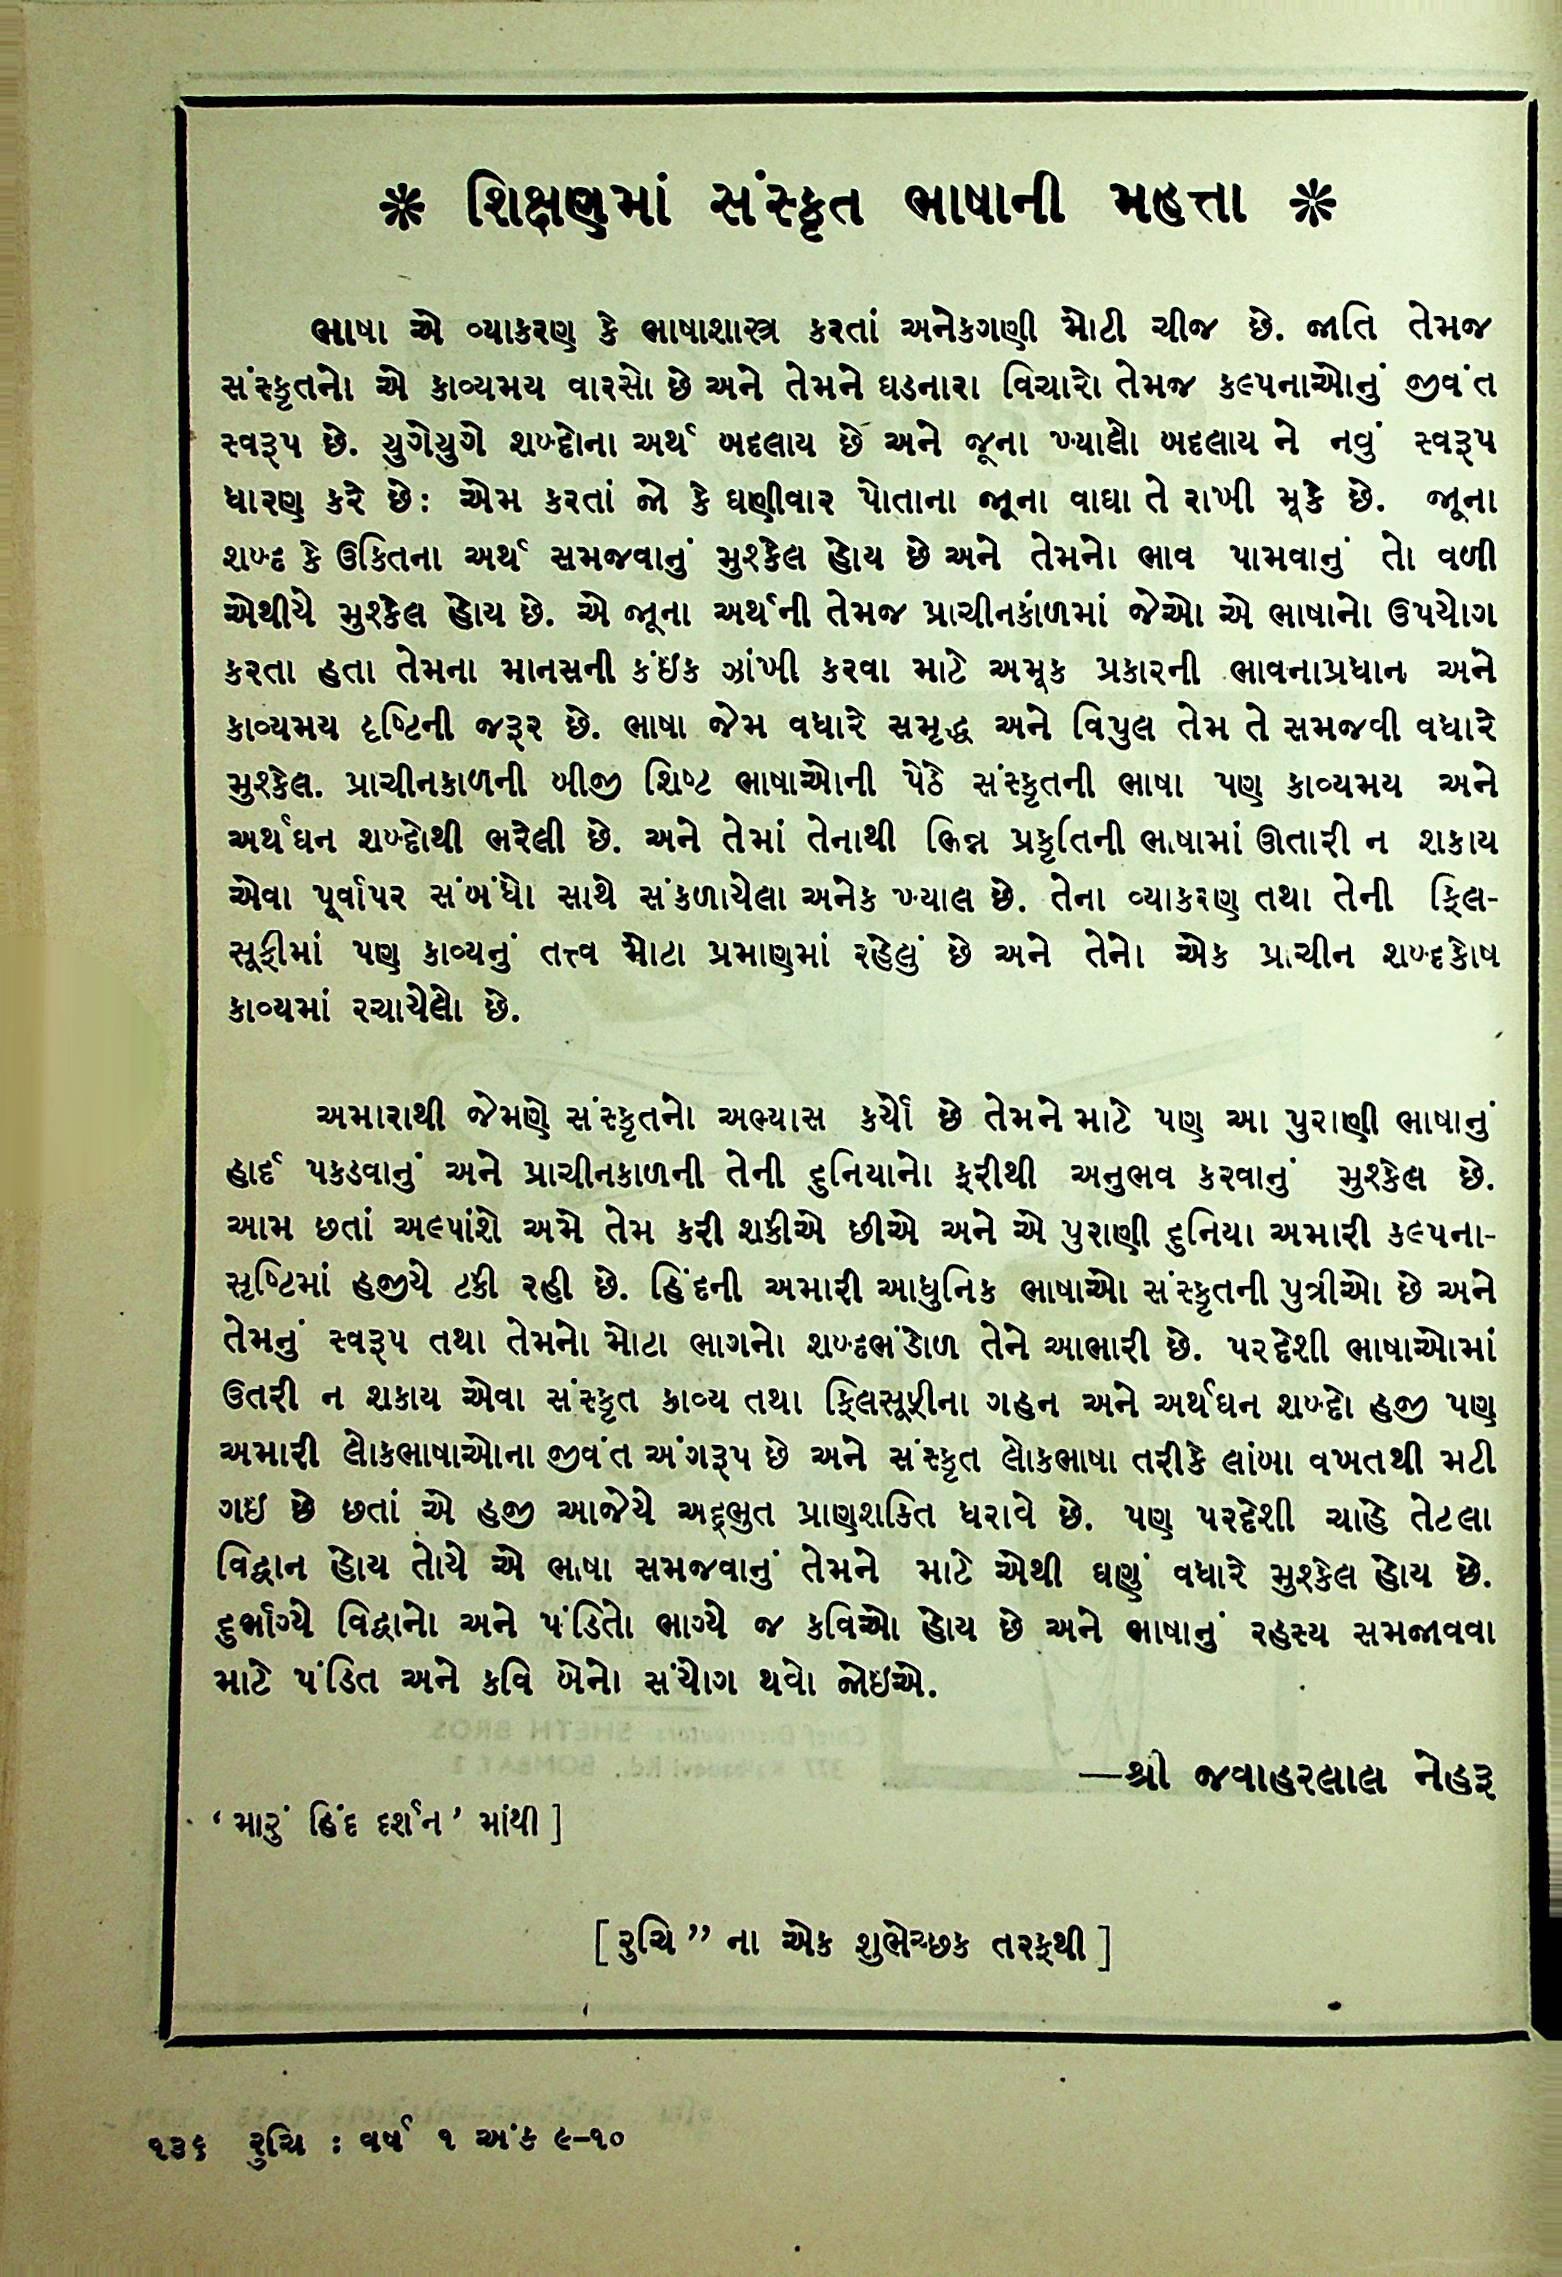 ❋ શિક્ષણમાં સંસ્કૃત ભાષાની મહત્તા ❋
ભાષા એ વ્યાકરણ કે ભાષાશાસ્ત્ર કરતાં અનેકગણી મોટી ચીજ છે. જાતિ તેમજ
સંસ્કૃતનો એ કાવ્યમય વારસો છે અને તેમને ઘડનારા વિચારો તેમજ કલ્પનાઓનું જીવંત
સ્વરૂપ છે. યુગેયુગે શબ્દોના અર્થ બદલાય છે અને જૂના ખ્યાલો બદલાય ને નવું સ્વરૂપ
ધારણ કરે છે: એમ કરતાં જો કે ઘણીવાર પોતાના જૂના વાઘા તે રાખી મૂકે છે. જૂના
શબ્દ કે ઉક્તિના અર્થ સમજવાનું મુશ્કેલ હોય છે અને તેમનો ભાવ પામવાનું તો વળી
એથીયે મુશ્કેલ હોય છે. એ જૂના અર્થની તેમજ પ્રાચીનકાળમાં જેઓ એ ભાષાનો ઉપયોગ
કરતા હતા તેમના માનસની કંઇક ઝાંખી કરવા માટે અમૂક પ્રકારની ભાવનાપ્રધાન અને
કાવ્યમય દૃષ્ટિની જરૂર છે. ભાષા જેમ વધારે સમૃદ્ધ અને વિપુલ તેમ તે સમજવી વધારે
મુશ્કેલ. પ્રાચીનકાળની બીજી શિષ્ટ ભાષાઓની પેઠે સંસ્કૃતની ભાષા પણ કાવ્યમય અને
અર્થઘન શબ્દોથી ભરેલી છે. અને તેમાં તેનાથી ભિન્ન પ્રકૃતિની ભાષામાં ઊતારી ન શકાય
એવા પૂર્વાપર સંબંધો સાથે સંકળાયેલા અનેક ખ્યાલ છે. તેના વ્યાકરણ તથા તેની ફિલ-
સૂફીમાં પણ કાવ્યનું તત્ત્વ મોટા પ્રમાણમાં રહેલું છે અને તેનો એક પ્રાચીન શબ્દકોષ
કાવ્યમાં રચાયેલો છે.
અમારાથી જેમણે સંસ્કૃતનો અભ્યાસ કર્યો છે તેમને માટે પણ આ પુરાણી ભાષાનું
હાર્દ પકડવાનું અને પ્રાચીનકાળની તેની દુનિયાનો ફરીથી અનુભવ કરવાનું મુશ્કેલ છે.
આમ છતાં અલ્પાંશે અમે તેમ કરી શકીએ છીએ અને એ પુરાણી દુનિયા અમારી કલ્પના-
સૃષ્ટિમાં હજીયે ટકી રહી છે. હિંદની અમારી આધુનિક ભાષાઓ સંસ્કૃતની પુત્રીઓ છે અને
તેમનું સ્વરૂપ તથા તેમનો મોટા ભાગનો શબ્દભંડોળ તેને આભારી છે. પરદેશી ભાષાઓમાં
ઉતરી ન શકાય એવા સંસ્કૃત કાવ્ય તથા ફિલસૂફીના ગહન અને અર્થઘન શબ્દો હજી પણ
અમારી લોકભાષાઓના જીવંત અંગરૂપ છે અને સંસ્કૃત લોકભાષા તરીકે લાંબા વખતથી મટી
ગઇ છે છતાં એ હજી આજેયે અદ્ભુત પ્રાણશક્તિ ધરાવે છે. પણ પરદેશી ચાહે તેટલા
વિદ્વાન હોય તોયે એ ભાષા સમજવાનું તેમને માટે એથી ઘણું વધારે મુશ્કેલ હોય છે.
દુર્ભાગ્યે વિદ્વાનો અને પંડિતો ભાગ્યે જ કવિઓ હોય છે અને ભાષાનું રહસ્ય સમજાવવા
માટે પંડિત અને કવિ બેનો સંયોગ થવો જોઇએ.
—શ્રી જવાહરલાલ નેહરૂ
‘મારું હિંદ દર્શન’ માંથી]
[રુચિ” ના એક શુભેચ્છક તરફથી]
૧૩૬ રુચિ : વર્ષ ૧ અંક ૯-૧૦